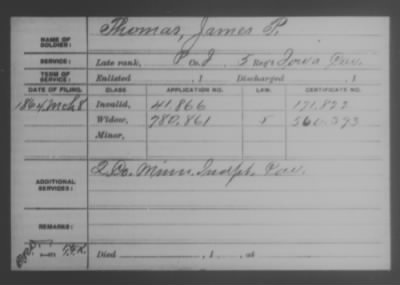 NAME OF SOLDIER: Thomas, James P.
SERVICE: Late rank, P Co. I, 5 Reg't Iowa Cav.
TERM OF SERVICE: Enlisted , 1 Discharged , 1
DATE OF FILING. CLASS. APPLICATION NO. LAW. CERTIFICATE NO.
1864 Mch 8 Invalid, 41,866 171,822
Widow, 780,861 560,373
Minor,
ADDITIONAL SERVICES: 2 Co. Minn. Cav.
REMARKS:
Died , 1 , at